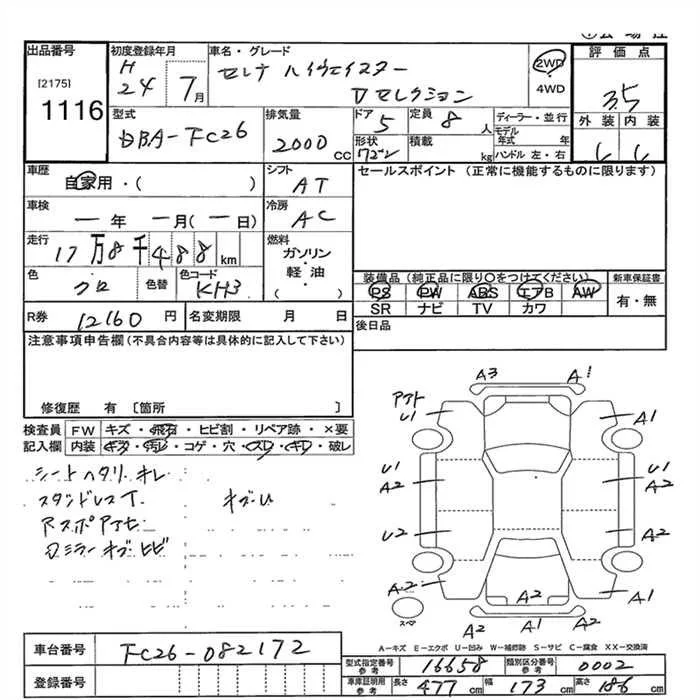 出品番号 初度登録年月 車名・グレード 評価点
[2175] H 24 7月 セレナ ハイウェイスター 2WD 3.5
1116 Vセレクション 4WD 外装 内装
型式 排気量 ドア 5 定員 8人 ディーラー・並行
DBA-FC26 2000cc 形状 ワゴン 積載 kg モデル年式 年
ハンドル 左・右
車歴 自家用・( ) シフト AT セールスポイント (正常に機能するものに限ります)
車検 ー年 ー月(ー日) 冷房 AC
走行 17万8千488km 燃料 ガソリン・軽油・( )
色 クロ 色替 色コード KH3 装備品(純正品に限り○をつけてください) 新車保証書
PS PW ABS エアB AW 有・無
SR ナビ TV カワ
R券 12160円 名変期限 月 日 後日品
注意事項申告欄(不具合内容等は具体的に記入して下さい)
修復歴 有 [箇所 ]
検査員 FW キズ・飛石・ヒビ割・リペア跡・×要
記入欄 内装 キズ・汚レ・コゲ・穴・スレ・キレ・破レ
シートヘタリ キレ
スタンドレスT. キズU
Rスポアトセ
Dミラーキズヒビ
A3 A1
アアト U1 A1
U1 A2 U1 A2
U2 A2
A2 A2 A1
スペア A2 A1 A2
A-キズ E-エクボ U-凹み W-補修跡 S-サビ C-腐食 XX-交換済
車台番号 FC26-082172
型式指定番号 参考 16658 類別区分番号 参考 0002
登録番号 車庫証明用 参考 長さ 477cm 幅 173cm 高さ 186cm